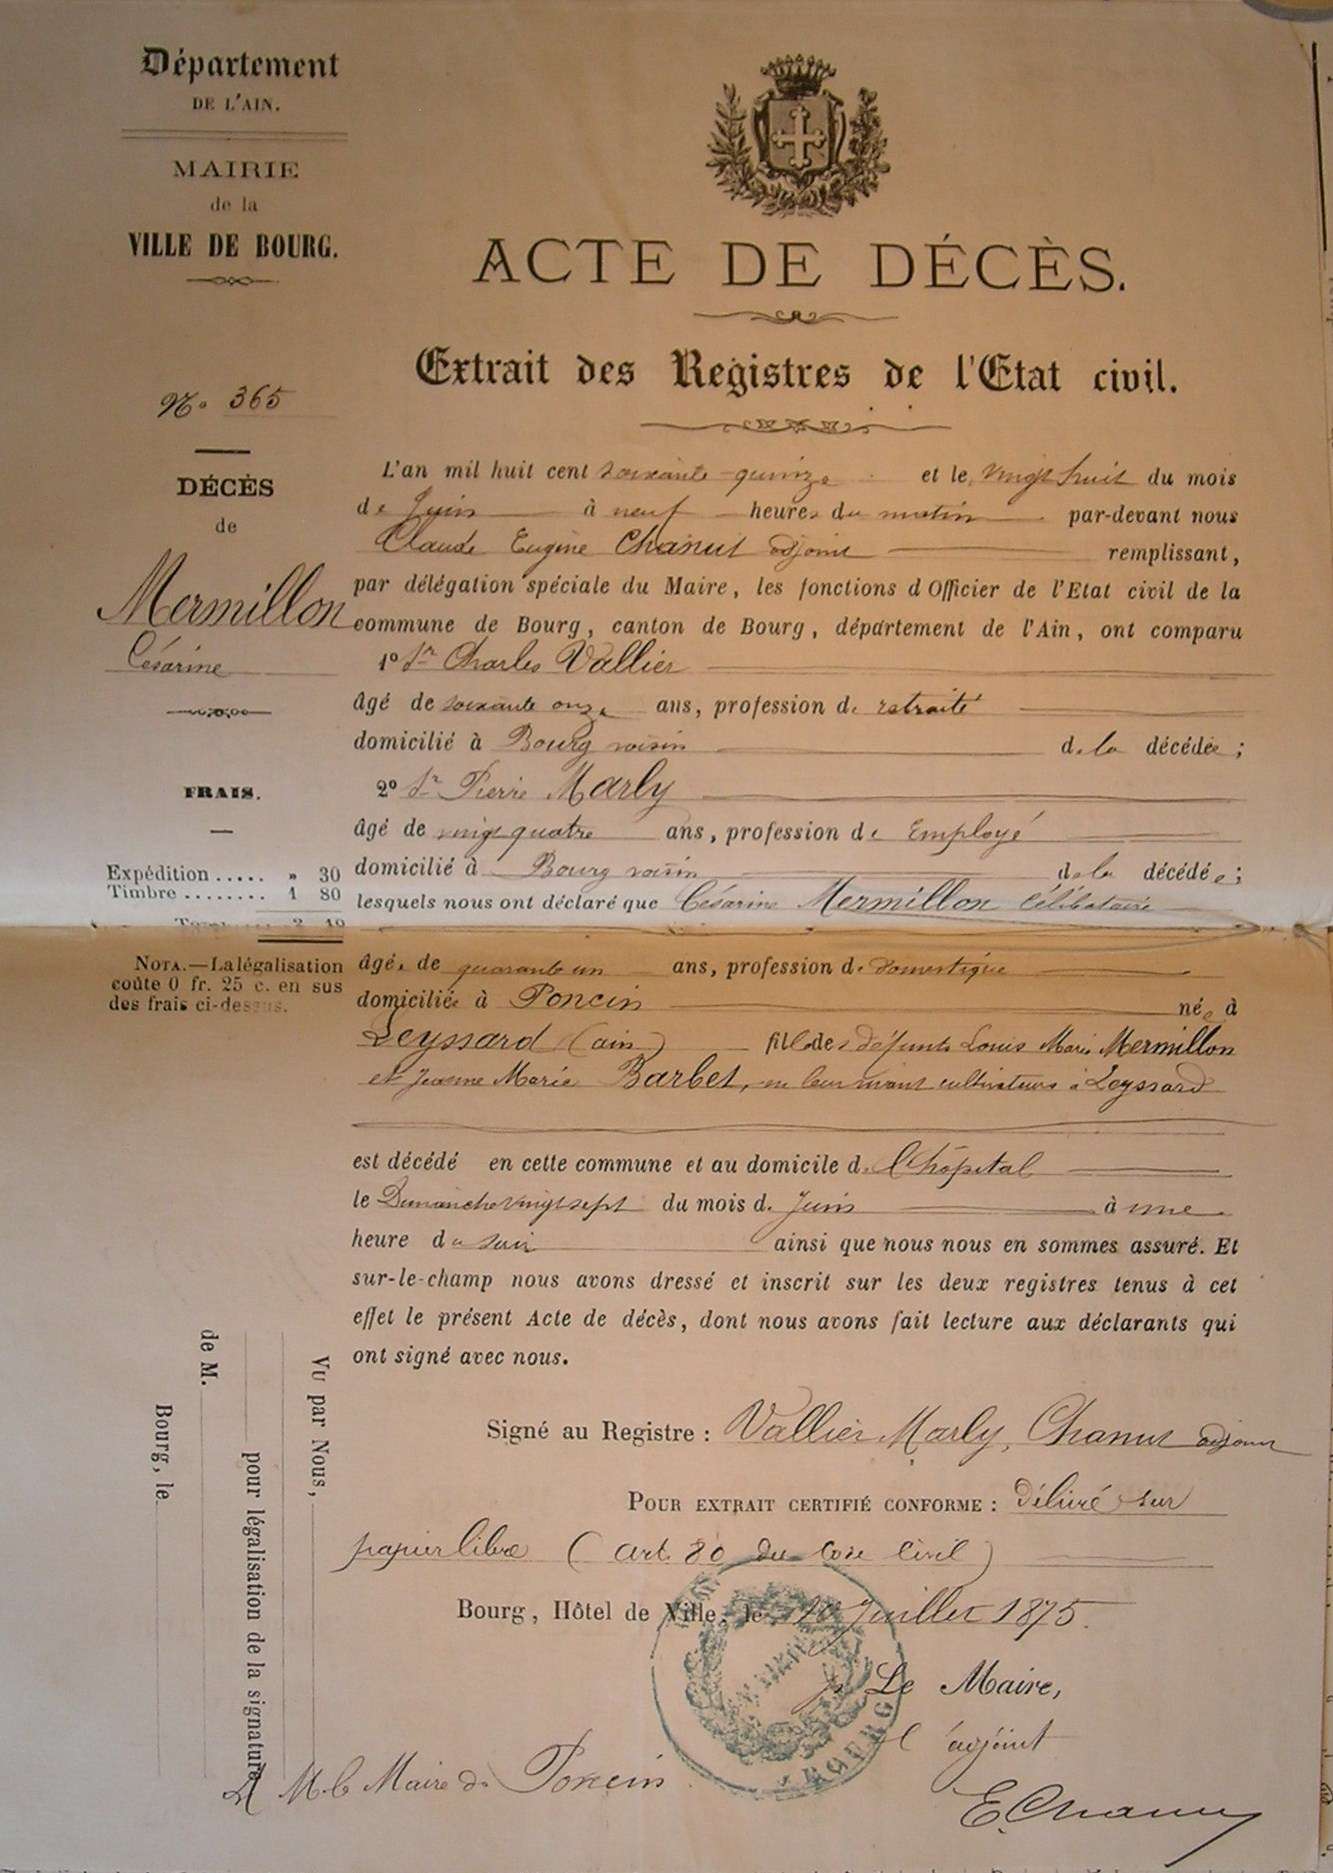 Département
DE L'AIN.
MAIRIE
de la
VILLE DE BOURG.
ACTE DE DÉCÈS.
Extrait des Registres de l'Etat civil.
No. 365
DÉCÈS
de
Mermillon
Césarine
FRAIS.
Expédition ..... » 30
Timbre ........ 1 80
Total 2 10
NOTA.—La légalisation
coûte 0 fr. 25 c. en sus
des frais ci-dessus.
L'an mil huit cent soixante-quinze et le vingt huit du mois
de Juin à neuf heures du matin par-devant nous
Claude Eugène Chanut adjoint remplissant,
par délégation spéciale du Maire, les fonctions d Officier de l'Etat civil de la
commune de Bourg, canton de Bourg, département de l'Ain, ont comparu
1º Sr Charles Vallier
âgé de soixante onze ans, profession de retraité
domicilié à Bourg voisin de la décédée;
2º Sr Pierre Marly
âgé de vingt quatre ans, profession de Employé
domicilié à Bourg voisin de la décédée;
lesquels nous ont déclaré que Césarine Mermillon Célibataire
âgée de quarante un ans, profession de domestique
domiciliée à Poncin née à
Leyssard (ain) fille de défunts Louis Marie Mermillon
et Jeanne Marie Barbet, en leur vivant cultivateurs à Leyssard
est décédé en cette commune et au domicile d. l'hôpital
le Dimanche vingt sept du mois d. Juin à une
heure du soir ainsi que nous nous en sommes assuré. Et
sur-le-champ nous avons dressé et inscrit sur les deux registres tenus à cet
effet le présent Acte de décès, dont nous avons fait lecture aux déclarants qui
ont signé avec nous.
Signé au Registre : Vallier Marly, Chanut adjoint
POUR EXTRAIT CERTIFIÉ CONFORME : Délivré sur
papier libre (art. 80 du Code Civil)
Bourg, Hôtel de Ville, le Juillet 1875.
Le Maire,
l'adjoint
E. Chanut
A M. le Maire de Poncin
VU par Nous,
pour légalisation de la signature
de M.
Bourg, le
MAIRIE
BOURG